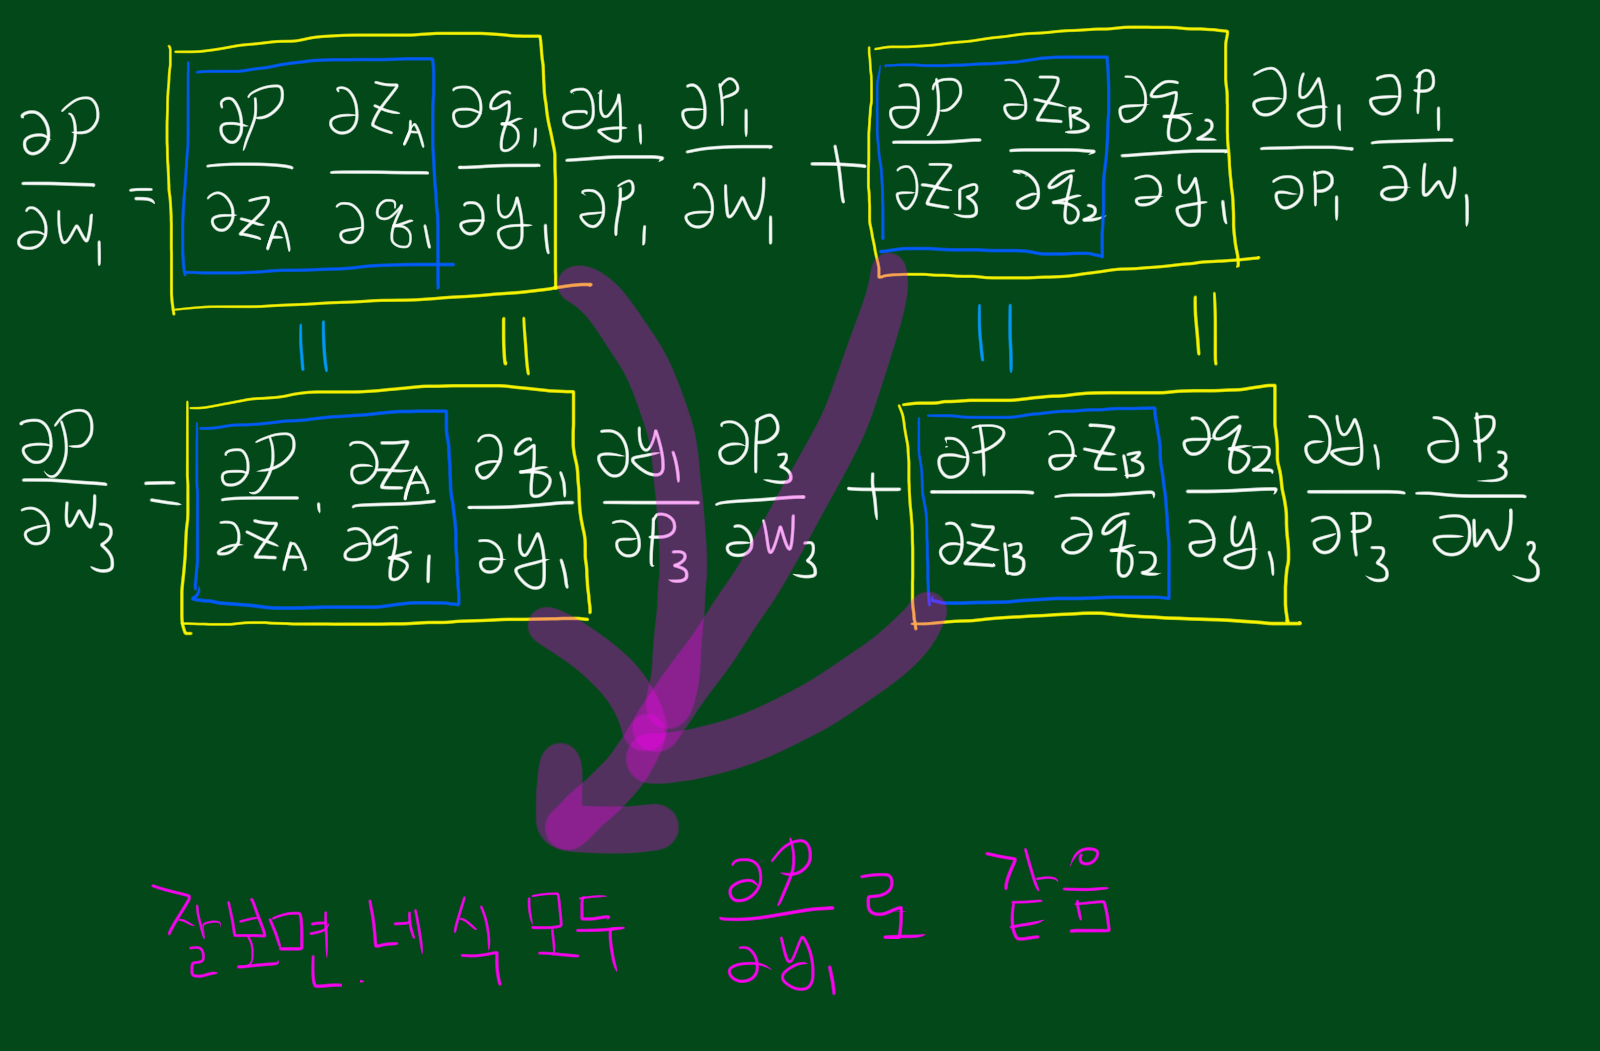 ∂P/∂W₁ = ∂P/∂Z_A ∂Z_A/∂q₁ ∂q₁/∂y₁ ∂y₁/∂P₁ ∂P₁/∂W₁ + ∂P/∂Z_B ∂Z_B/∂q₂ ∂q₂/∂y₁ ∂y₁/∂P₁ ∂P₁/∂W₁
|| || || ||
∂P/∂W₃ = ∂P/∂Z_A · ∂Z_A/∂q₁ ∂q₁/∂y₁ ∂y₁/∂P₃ ∂P₃/∂W₃ + ∂P/∂Z_B ∂Z_B/∂q₂ ∂q₂/∂y₁ ∂y₁/∂P₃ ∂P₃/∂W₃
잘보면. 네 식 모두 ∂P/∂y₁ 로 같음